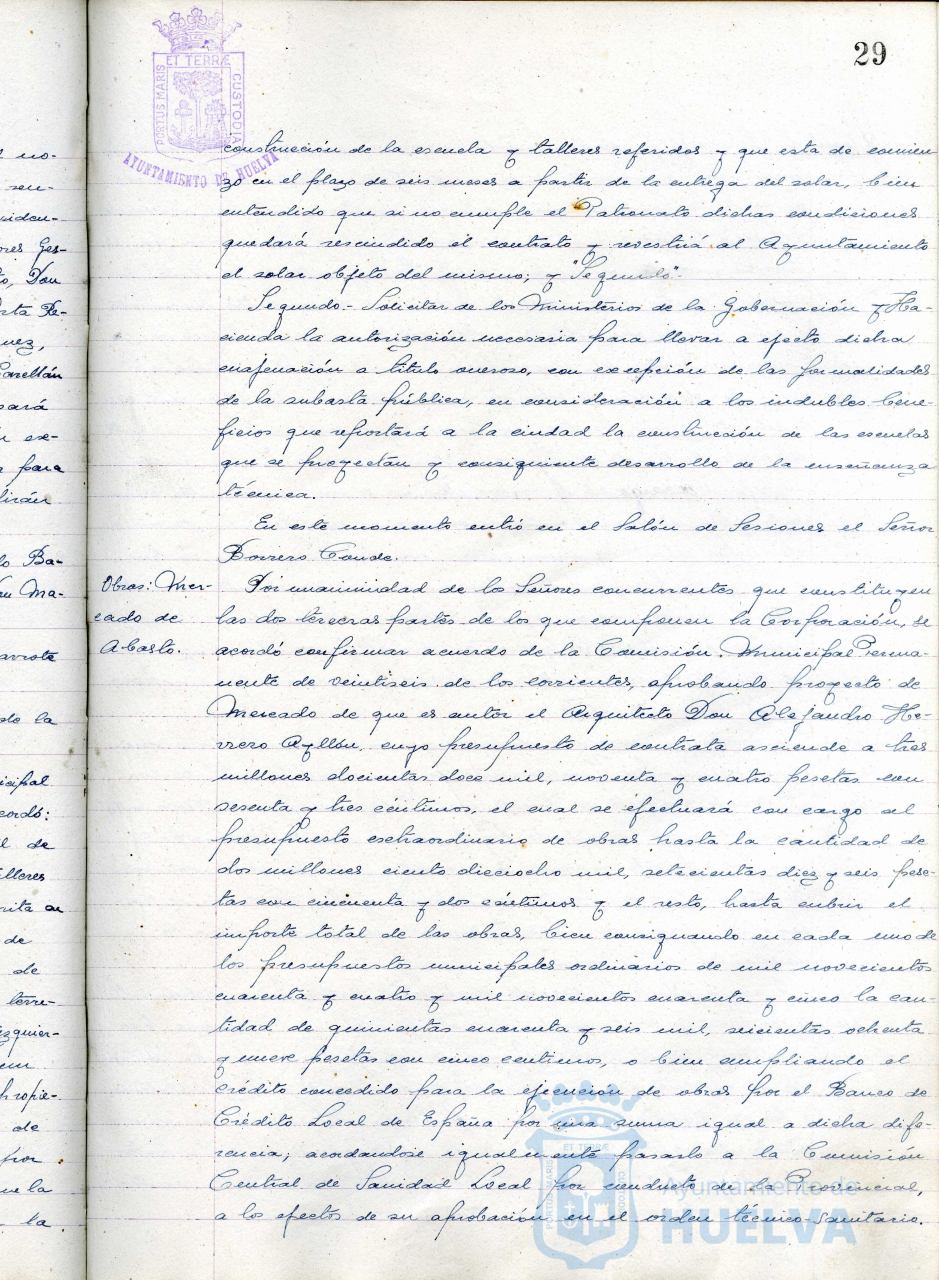 29
ET TERRÆ
PORTUS MARIS
CUSTODIA
AYUNTAMIENTO DE HUELVA
construcción de la escuela y talleres referidos y que esta de comien
zo en el plazo de seis meses a partir de la entrega del solar, bien
entendido que si no cumple el Patronato dichas condiciones
quedará rescindido el contrato y revestirá al Ayuntamiento
el solar objeto del mismo; y "Segundo".
Segundo.- Solicitar de los Ministerios de la Gobernación y Ha-
cienda la autorización necesaria para llevar a efecto dicha
enajenación a título oneroso, con excepción de las formalidades
de la subasta pública, en consideración a los indubles bene-
ficios que reportará a la ciudad la construcción de las escuelas
que se proyectán y consiguiente desarrollo de la enseñanza
técnica.
En este momento entró en el Salón de Sesiones el Señor
Borrero Conde.
Obras: Mer-
cado de
Abasto.
Por unanimidad de los Señores concurrentes que constituyen
las dos terceras partes de los que componen la Corporación, se
acordó confirmar acuerdo de la Comisión Municipal Perma-
nente de veintiseis de los corrientes, aprobando proyecto de
Mercado de que es autor el Arquitecto Don Alejandro He-
rrero Ayllón, cuyo presupuesto de contrata asciende a tres
millones docientas doce mil, noventa y cuatro pesetas con
sesenta y tres céntimos, el cual se efectuará con cargo al
presupuesto extraordinario de obras hasta la cantidad de
dos millones ciento dieciocho mil, setecientas diez y seis pese-
tas con cincuenta y dos céntimos y el resto, hasta cubrir el
importe total de las obras, bien consignando en cada uno de
los presupuestos municipales ordinarios de mil novecientos
cuarenta y cuatro y mil novecientos cuarenta y cinco la can-
tidad de quinientas cuarenta y seis mil, seicientas ochenta
y nueve pesetas con cinco centimos, o bien ampliando el
crédito concedido para la ejecución de obras por el Banco de
Crédito Local de España por una suma igual a dicha dife-
rencia; acordandose igualmente pasarlo a la Comisión
Central de Sanidad Local por conducto de la Provincial,
a los efectos de su aprobación en el orden técnico-sanitario.
Ayuntamiento de
HUELVA